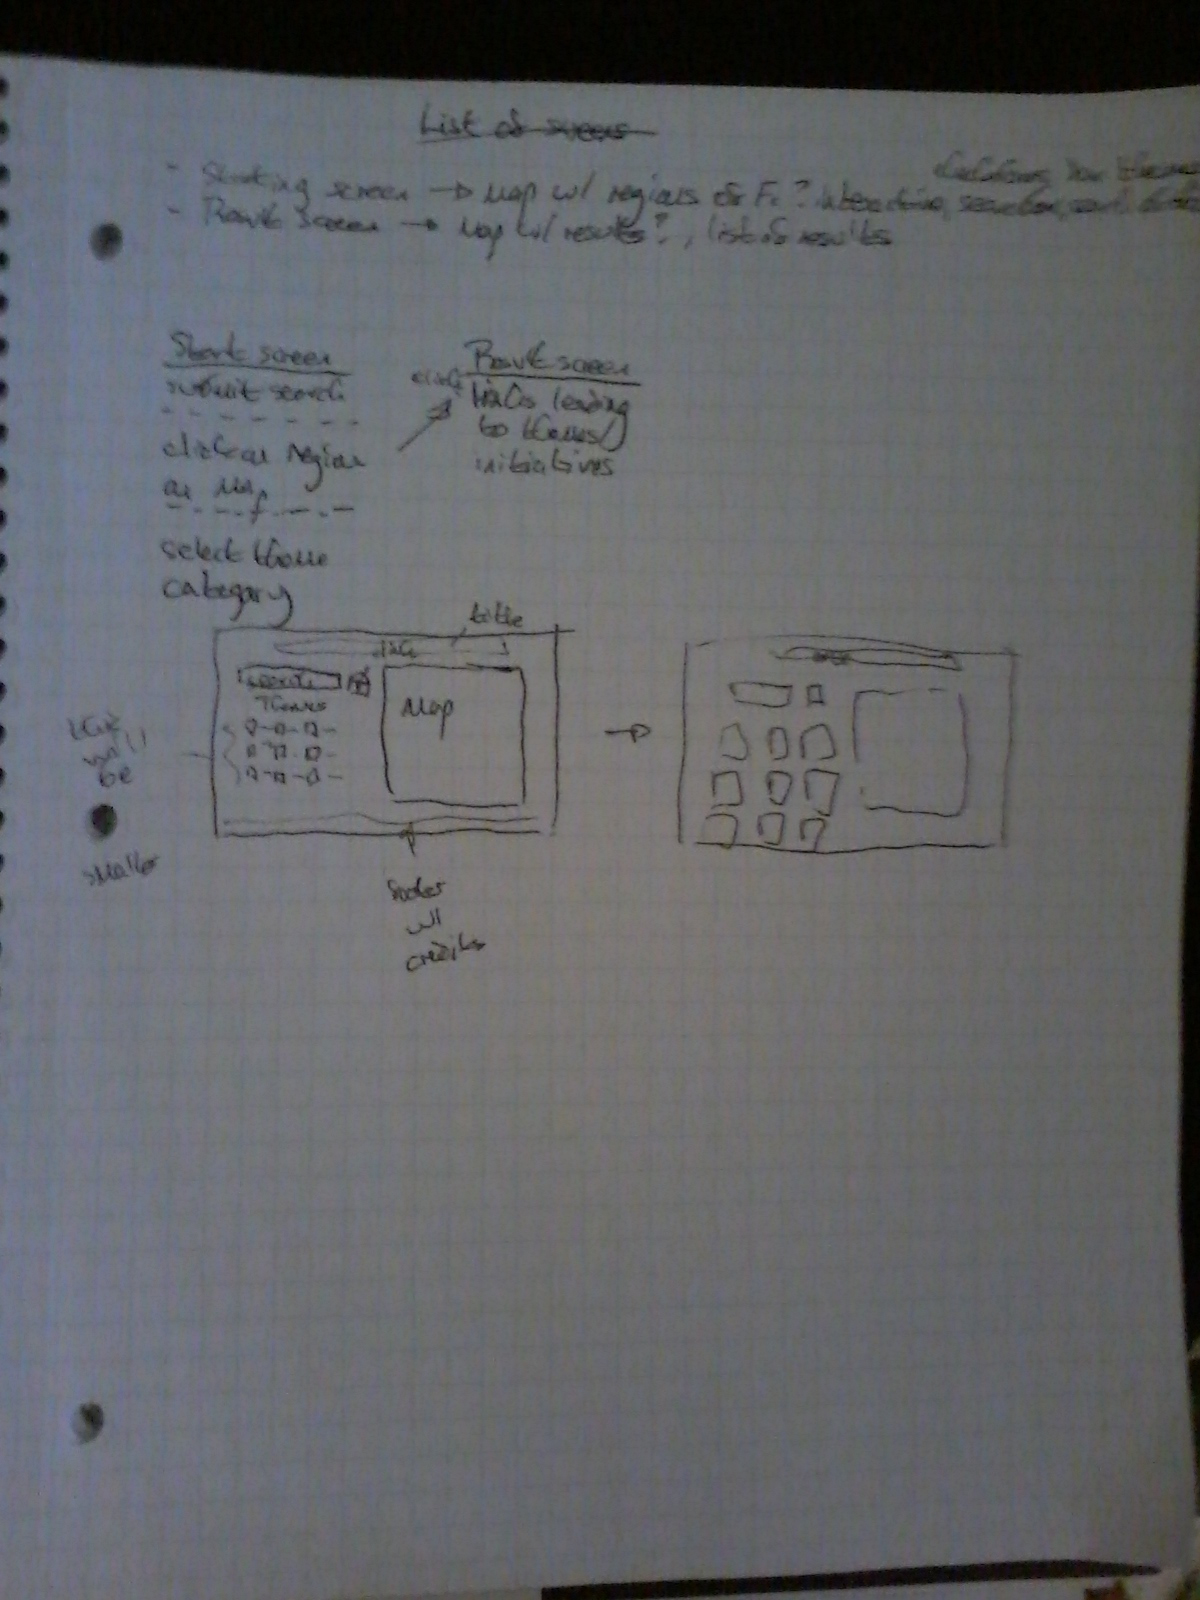 List of screens
- Starting screen → Map w/ regions of Fr? interactive, searchbox,
- Result screen → Map w/ results?, list of results
Start screen
submit search
click on region
on Map
select theme
category
Result screen
click
links leading
to themes/
initiatives
title
title
search
Themes
Map
this
will
be
smaller
footer
w/
credits